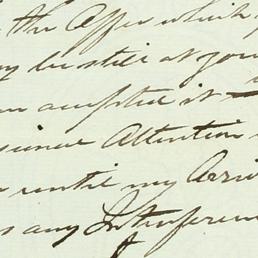 the Office which
be still at your
accepted it
Attention
until my Arri
as any Interferen